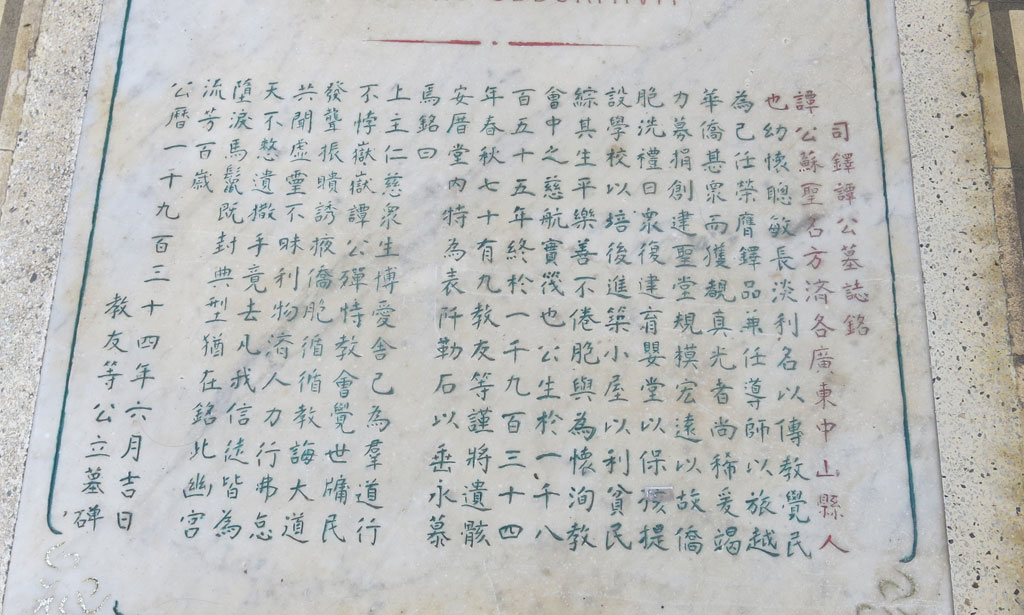 司鐸譚公墓誌銘
譚公蘇聖名方濟各廣東中山縣人
也幼懷聰敏長淡利名以傳教覺民
為己任榮膺鐸品兼任導師以旅越
華僑甚衆而獲覩真光者尚稀爰竭
力募捐創建聖堂規模宏遠以故僑
胞洗禮日衆復建育嬰堂以保孩提
設學校以培後進築小屋以利貧民
綜其生平樂善不倦胞與為懷洵教
會中之慈航寶筏也公生於一千八
百五十五年終於一千九百三十四
年春秋七十有九教友等謹將遺骸
安厝堂內特為表阡勒石以垂永慕
焉銘曰
上主仁慈衆生博愛舍己為羣道行
不悖嶽嶽譚公殫恃教會覺世牖民
發聾振聵誘掖僑胞循循教誨大道
共聞虛靈不昧利物濟人力行弗怠
天不憖遺撒手竟去凡我信徒皆為
墮淚馬鬣既封典型猶在銘此幽宮
流芳百歲
公曆一千九百三十四年六月吉日
教友等公立墓碑